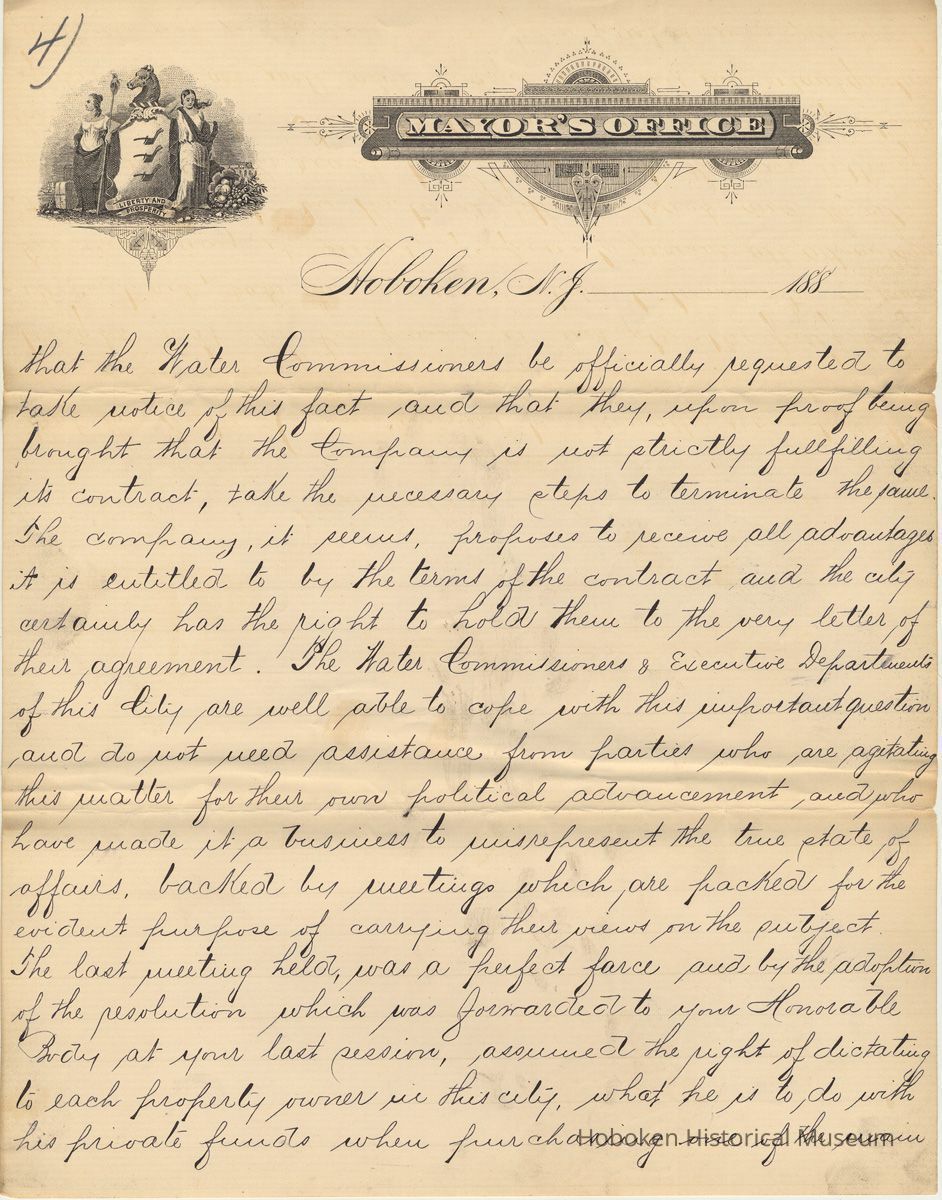 4)
LIBERTY AND
PROSPERITY
MAYOR'S OFFICE
Hoboken, N.J. 188
that the Water Commissioners be officially requested to
take notice of this fact and that they, upon proof being
brought that the Company is not strictly fullfilling
its contract, take the necessary steps to terminate the same.
The company, it seems, proposes to receive all advantages
it is entitled to by the terms of the contract and the city
certainly has the right to hold them to the very letter of
their agreement. The Water Commissioners & Executive Departments
of this City are well able to cope with this important question
and do not need assistance from parties who are agitating
this matter for their own political advancement and who
have made it a business to misrepresent the true state of
affairs, backed by meetings which are packed for the
evident purpose of carrying their views on the subject.
The last meeting held, was a perfect farce and by the adoption
of the resolution which was forwarded to your Honorable
Body at your last session, assumed the right of dictating
to each property owner in this city, what he is to do with
his private funds when purchasing one of the many
Hoboken Historical Museum